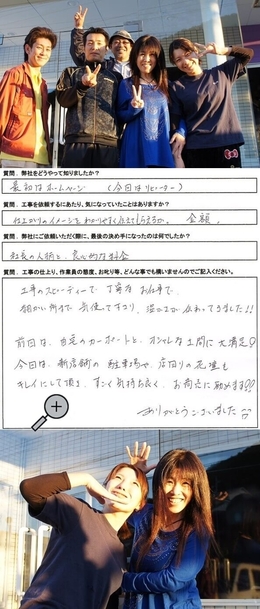 質問．弊社をどうやって知りましたか？
最初はホームページ （今回はリピーター）
質問．工事を依頼するにあたり、気になっていたことはありますか？
仕上がりのイメージをわかりやすく伝えてもらえるか。 金額。
質問．弊社にご依頼いただく際に、最後の決め手になったのは何でしたか？
社長の人柄と、良心的な料金
質問．工事の仕上り、作業員の態度、お叱り等、どんな事でも構いませんのでご記入ください。
工事のスピーディーで、丁寧なお仕事で、
細かい所まで気使って下さり、温かさが伝わってきました!!
前回は、自宅のカーポートと、オシャレな土間に大満足
今回は、新店舗の駐車場や、店回りの花壇も
キレイにして頂き、すごく気持ち良く、お商売に励めます!!
ありがとうございました